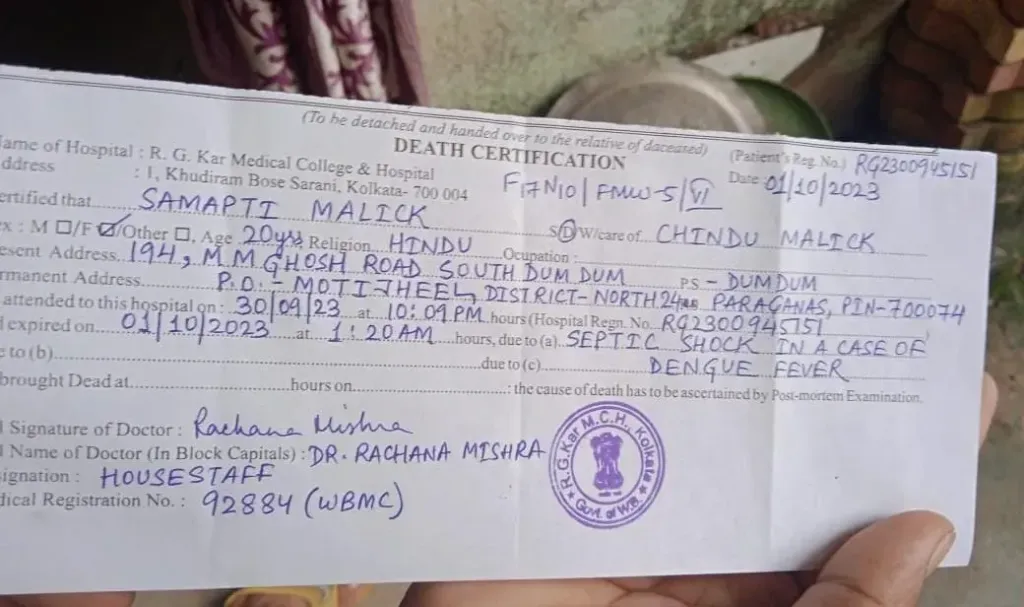 (To be detached and handed over to the relative of daceased)
DEATH CERTIFICATION
(Patient's Reg. No.) RG2300945151
Name of Hospital : R. G. Kar Medical College & Hospital
Date 01/10/2023
ddress : 1, Khudiram Bose Sarani, Kolkata- 700 004
F17N10/FMW-5/VI
ertified that SAMAPTI MALICK S/D/W/care of CHINDU MALICK
ex : M ☐/F ☑/Other ☐, Age 20yrs Religion HINDU Ocupation :
esent Address 194, M.M.GHOSH ROAD SOUTH DUM DUM PS - DUMDUM
rmanent Address P.O.- MOTIJHEEL, DISTRICT- NORTH 24 PARAGANAS, PIN-700074
attended to this hospital on : 30/09/23 at 10:09 PM hours (Hospital Regn. No. RG2300945151
expired on 01/10/2023 at 1:20AM hours, due to (a) SEPTIC SHOCK IN A CASE OF
e to (b) due to (c) DENGUE FEVER
brought Dead at hours on : the cause of death has to be ascertained by Post-mortem Examination.
l Signature of Doctor : Rachana Mishra
l Name of Doctor (In Block Capitals) : DR. RACHANA MISHRA
signation : HOUSESTAFF
dical Registration No. : 92884 (WBMC)
R.G.Kar M.C.H., Kolkata
Govt. of W.B.